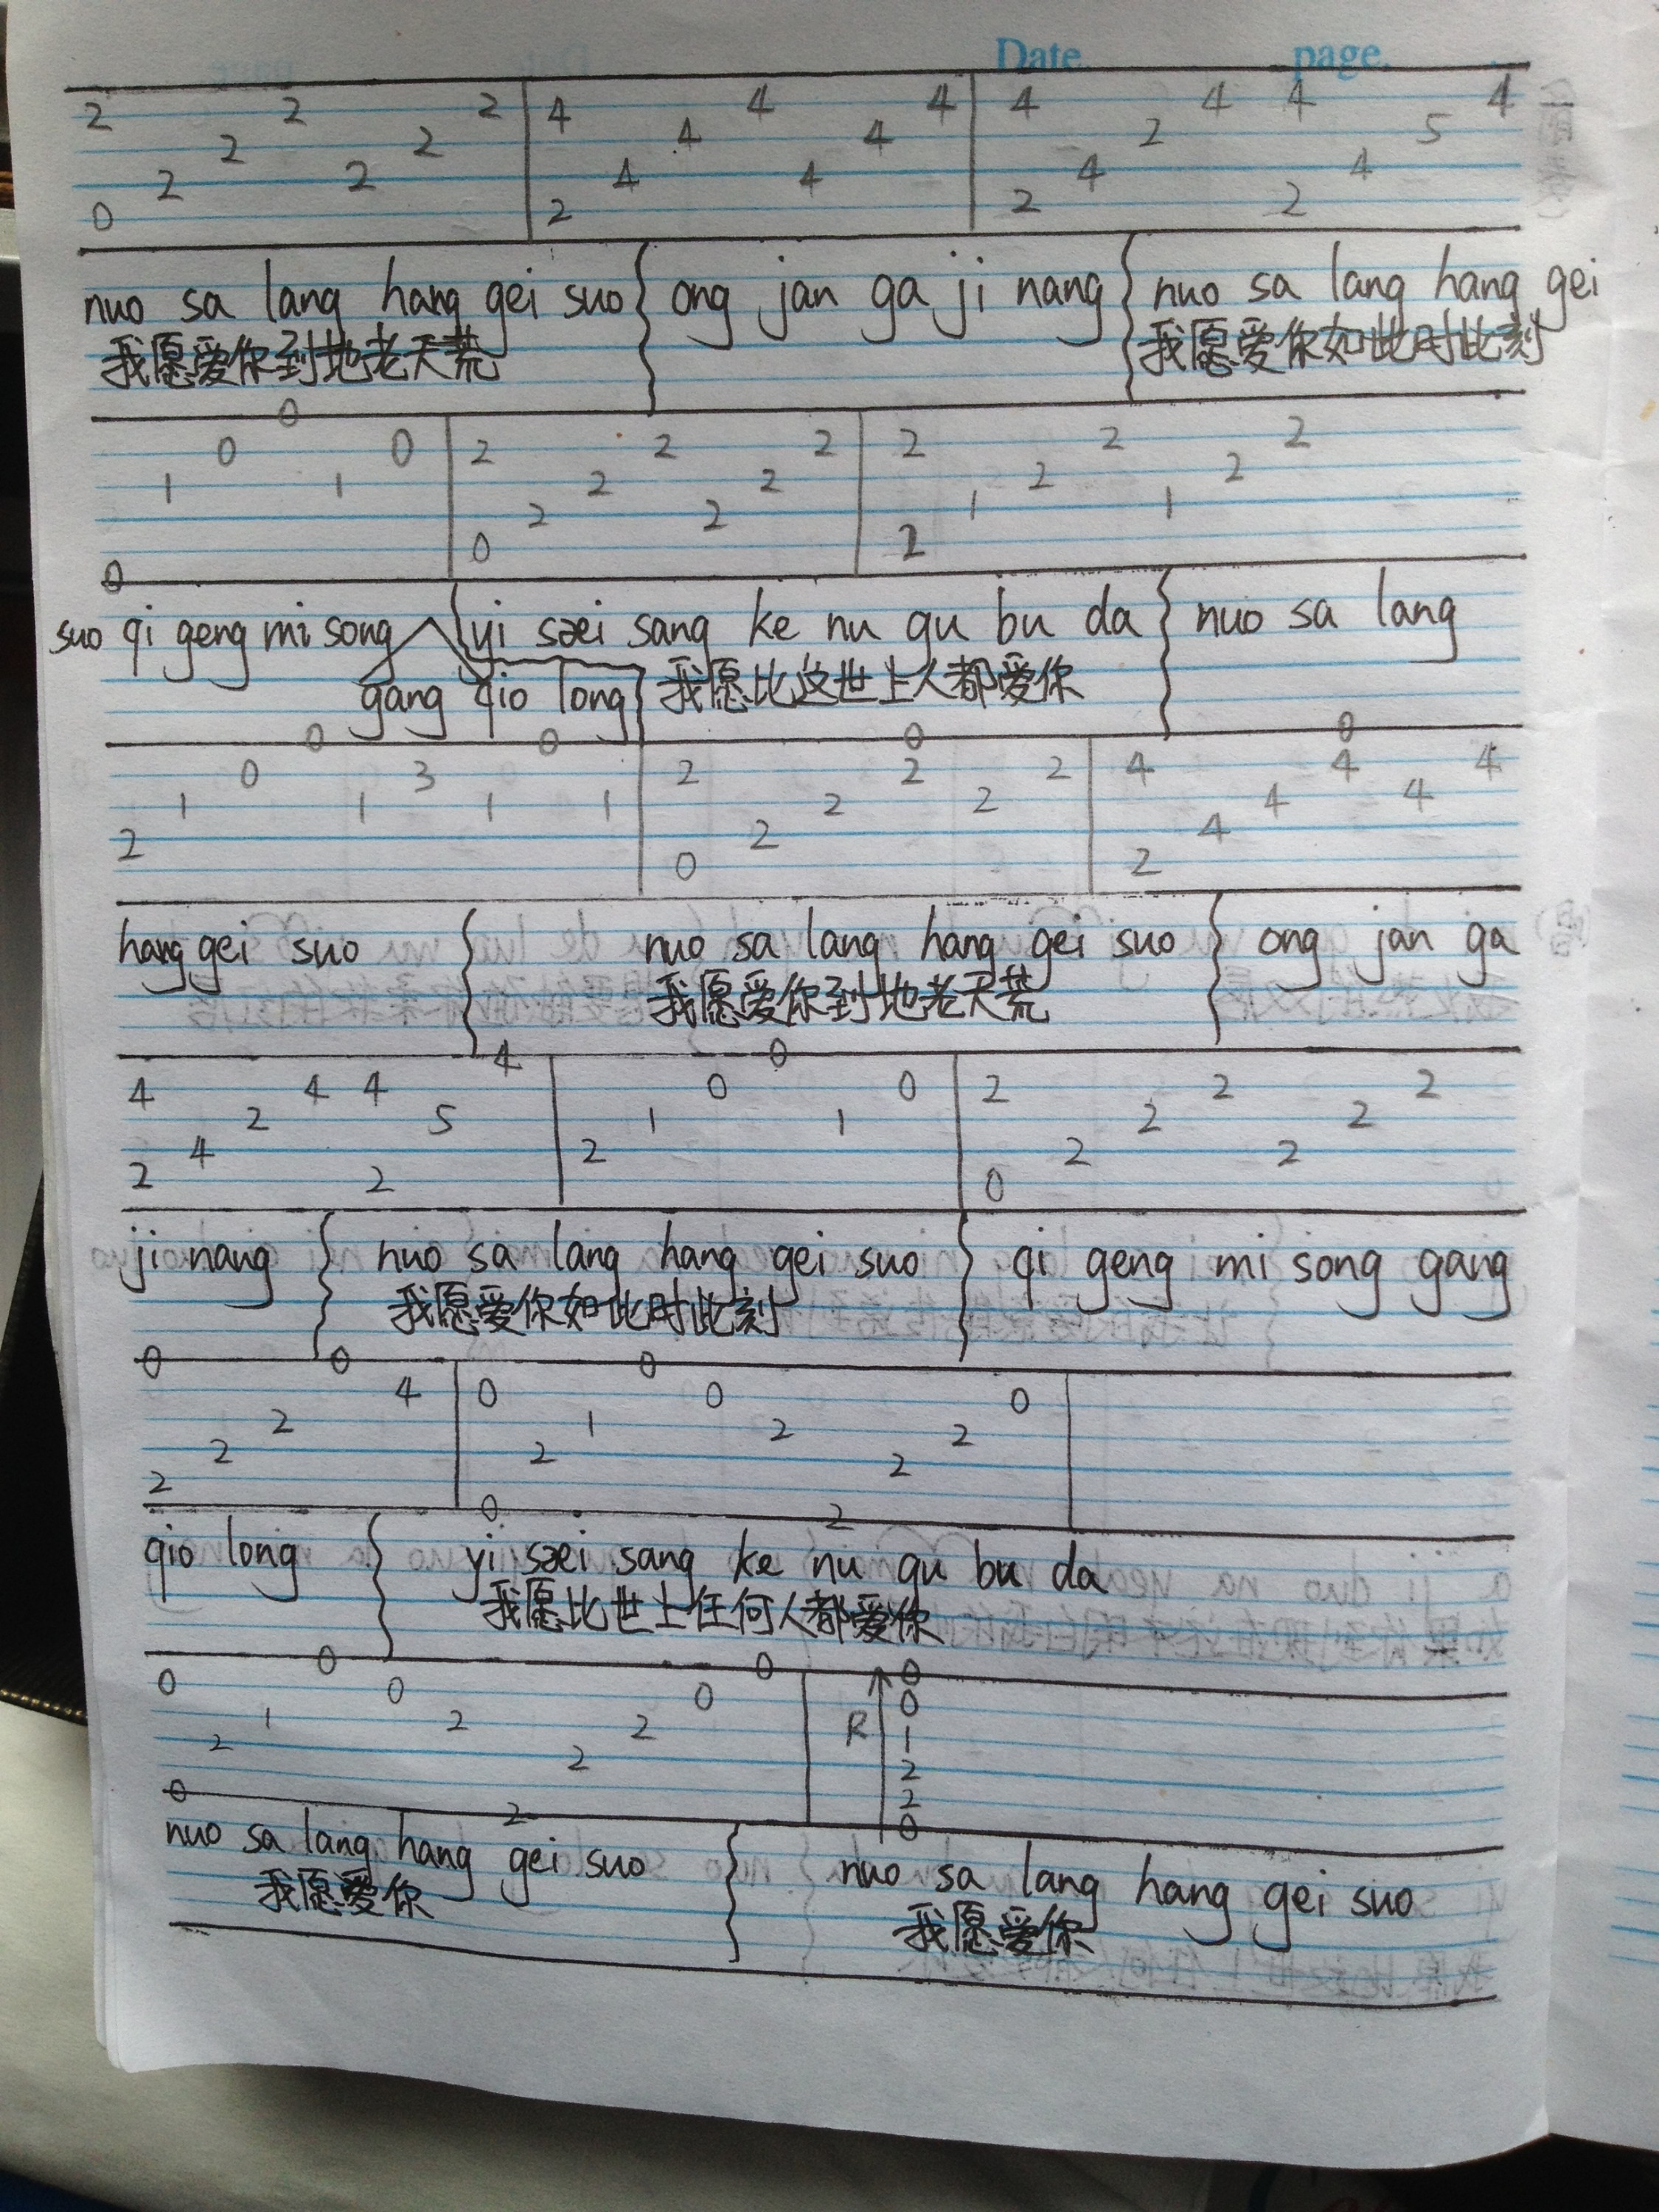 Date. page.
2 2 2 2 2 2 2 4 4 4 4 4 4 4 2 4 4 5 4
0 2 4 2 4 2 4
nuo sa lang hang gei suo ong jan ga ji nang nuo sa lang hang gei
我愿爱你到地老天荒 我愿爱你如此时此刻
0 1 0 0 1 0 0 2 2 2 2 2 2 2 2 2 1 2 2 1 2 2
suo qi geng mi song yi sæi sang ke nu gu bu da nuo sa lang
gang qio long 我愿比这世上人都爱你
2 1 0 0 1 3 0 1 1 0 2 2 2 0 2 2 2 2 4 4 4 0 4 4 4
hang gei suo nuo sa lang hang gei suo ong jan ga
我愿爱你到地老天荒
2 4 4 2 4 4 2 5 4 2 1 0 0 1 0 0 2 2 2 2 2 2 2
ji nang nuo sa lang hang gei suo qi geng mi song gang
我愿爱你如此时此刻
0 2 2 2 0 4 0 0 2 1 0 0 2 2 2 2 0
qio long yi sæi sang ke nu gu bu da
我愿比世上任何人都爱你
0 0 2 1 0 0 2 2 2 2 0 0 R 0 0 1 2 2 0
nuo sa lang hang gei suo nuo sa lang hang gei suo
我愿爱你 我愿爱你